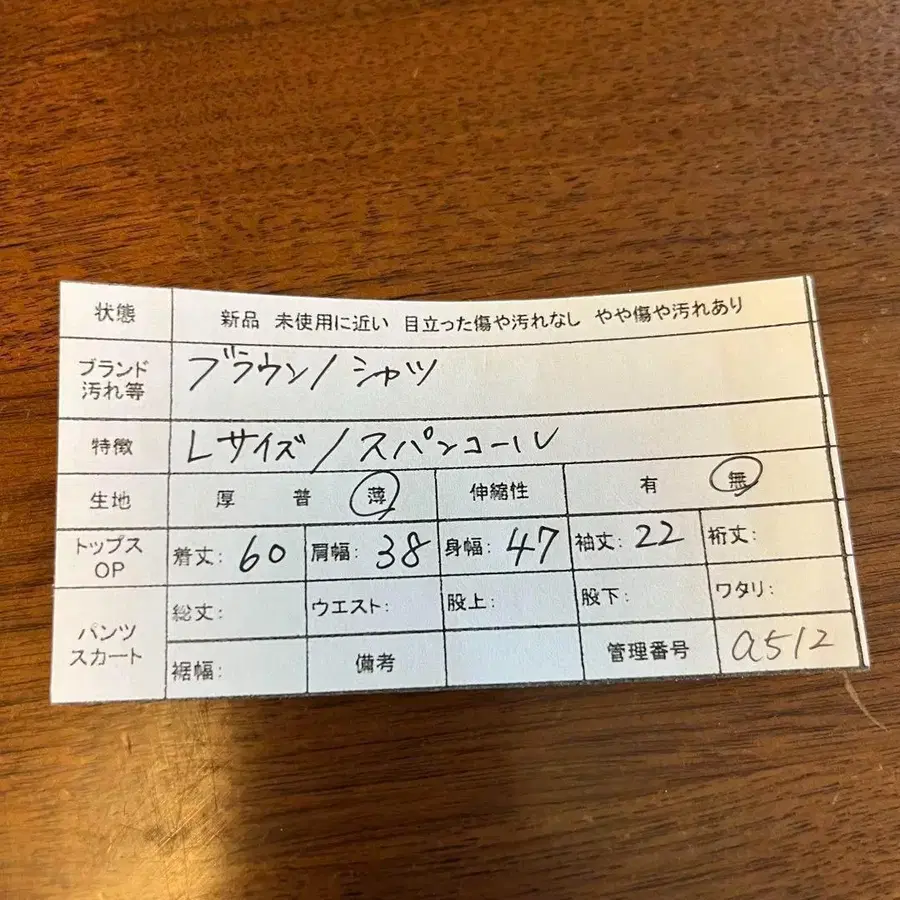 状態 新品 未使用に近い 目立った傷や汚れなし やや傷や汚れあり
ブランド 汚れ等 ブラウン/シャツ
特徴 Lサイズ/スパンコール
生地 厚 普 薄 伸縮性 有 無
トップス OP 着丈: 60 肩幅: 38 身幅: 47 袖丈: 22 裄丈:
パンツ スカート 総丈: ウエスト: 股上: 股下: ワタリ:
裾幅: 備考 管理番号 a512